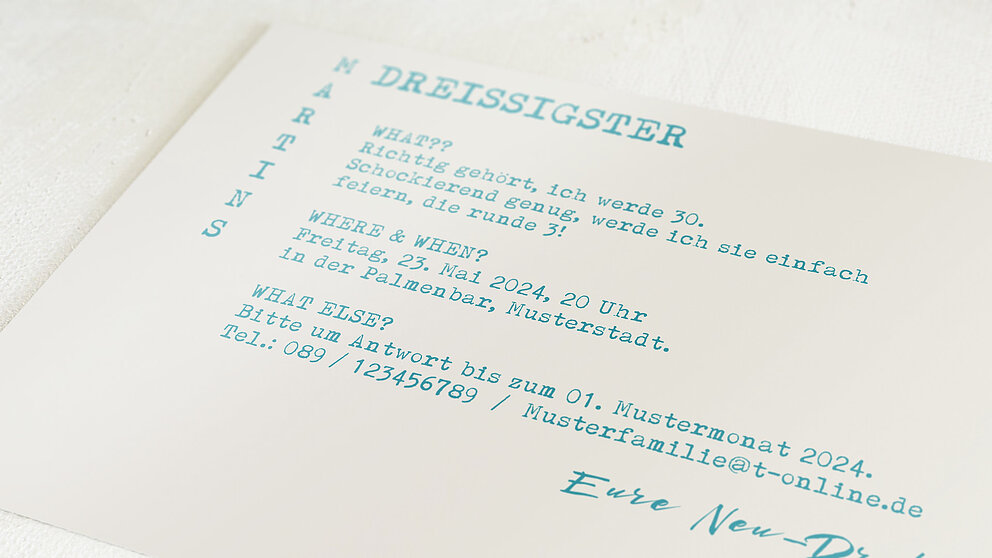 MARTINS
DREISSIGSTER
WHAT??
Richtig gehört, ich werde 30.
Schockierend genug, werde ich sie einfach
feiern, die runde 3!
WHERE & WHEN?
Freitag, 23. Mai 2024, 20 Uhr
in der Palmenbar, Musterstadt.
WHAT ELSE?
Bitte um Antwort bis zum 01. Mustermonat 2024.
Tel.: 089 / 123456789 / Musterfamilie@t-online.de
Eure Neu-